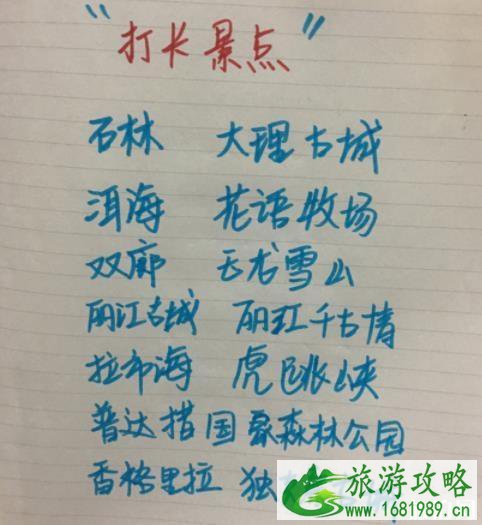 "打长景点"
石林 大理古城
洱海 花语牧场
双廊 玉龙雪山
丽江古城 丽江千古情
拉市海 虎跳峡
普达措国家森林公园
香格里拉 独
旅游攻略
www.1681989.cn